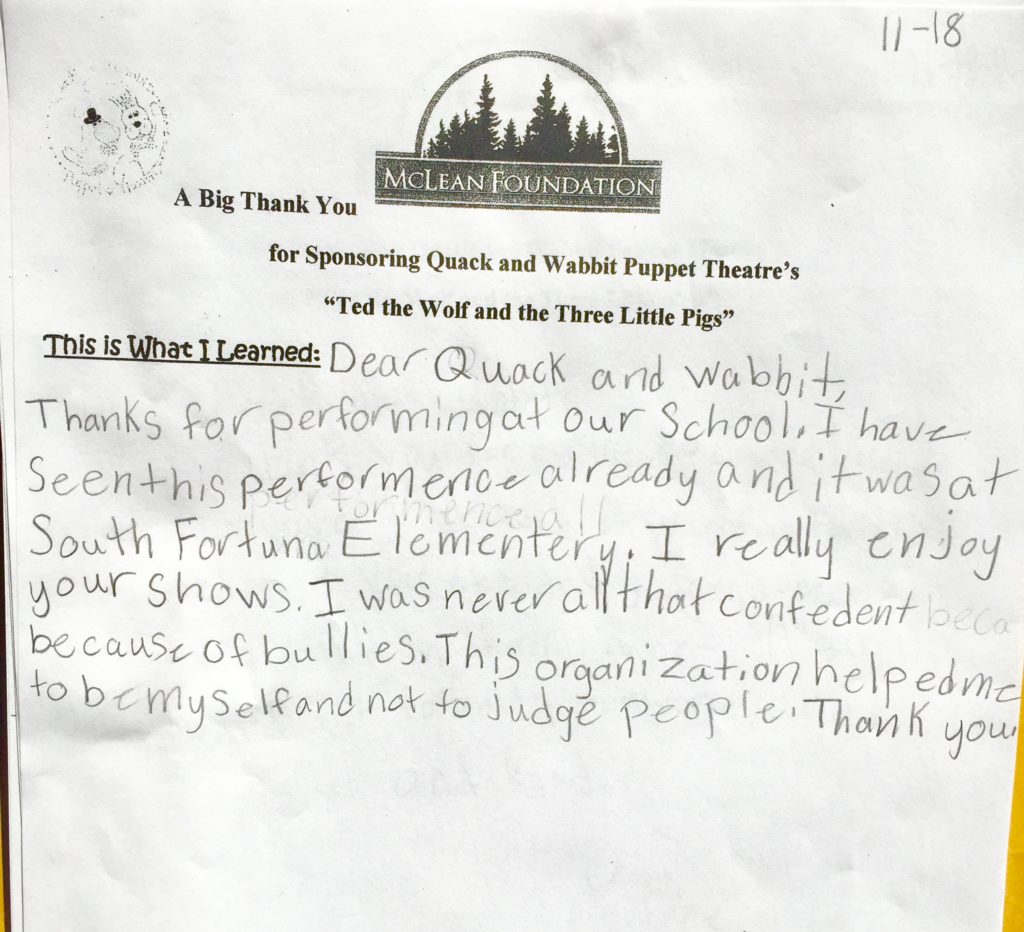 11-18
McLean Foundation
A Big Thank You
for Sponsoring Quack and Wabbit Puppet Theatre's
“Ted the Wolf and the Three Little Pigs”
This is What I Learned: Dear Quack and Wabbit,
Thanks for performing at our School. I have
Seen this performence already and it was at
performence all
South Fortuna Elementery. I really enjoy
your shows. I was never all that confedent beca
because of bullies. This organization helped me
to be myself and not to judge people. Thank you.